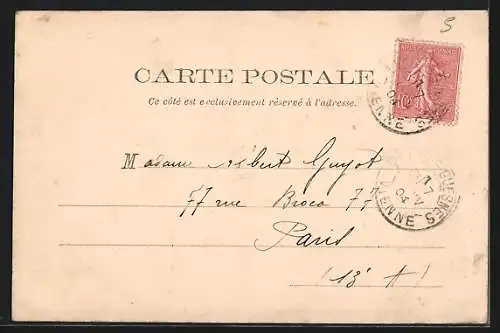 5
CARTE POSTALE
Ce côté est exclusivement réservé à l'adresse.
Madame Albert Guyot
77 rue Broca 77
Paris
(13e Art)
17
04
VIENNE
17
04
VIENNE